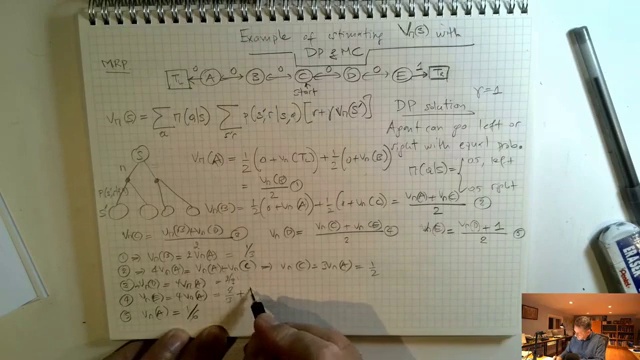 Example of estimating Vπ(s) with
DP & MC
MRP
T ←0 A ←0→ B ←0→ C ←0→ D ←0→ E 1→ T
start
Vπ(s) = Σ_a π(a|s) Σ_s'r p(s',r|s,a) [r + γ Vπ(s')]
DP solution γ=1
Agent can go left or
right with equal prob.
π(a|s) = { 0.5, left
0.5 right
S
π
s'
Vπ(A) = 1/2 (0 + Vπ(T)) + 1/2 (0 + Vπ(B))
= Vπ(B)/2 ①
Vπ(B) = 1/2 (0 + Vπ(A)) + 1/2 (0 + Vπ(C)) = Vπ(A) + Vπ(C) / 2 ②
Vπ(C) = Vπ(B) + Vπ(D) / 2 ③ Vπ(D) = Vπ(C) + Vπ(E) / 2 ④ Vπ(E) = Vπ(D) + 1 / 2 ⑤
① ⇒ Vπ(B) = 2Vπ(A) = 1/3
② ⇒ 4Vπ(A) = Vπ(A) + Vπ(C) ⇒ Vπ(C) = 3Vπ(A) = 1/2
Vπ(D) = 4Vπ(A) = 2/3
④ Vπ(A)
⑤ Vπ(A) = 1/6